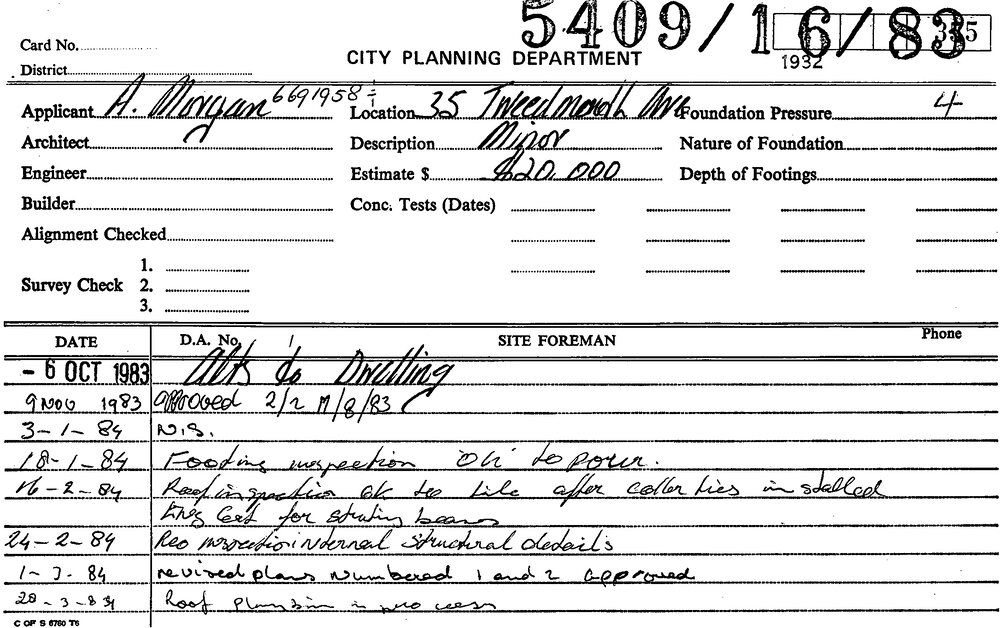 5409/16/83
1932
Card No.
CITY PLANNING DEPARTMENT
District
Applicant A. Morgan 6691958 Location 35 Tweedmouth Ave Foundation Pressure 4
Architect Description Minor Nature of Foundation
Engineer Estimate $ $20,000 Depth of Footings
Builder Conc. Tests (Dates)
Alignment Checked
1.
Survey Check 2.
3.
DATE D.A. No. SITE FOREMAN Phone
- 6 OCT 1983 Alts to Dwelling
9 NOV 1983 approved 2/2 M/8/83
3-1-84 N.S.
18-1-84 Footing inspection 'OK' to pour.
16-2-84 Roof inspection ok to tile after collar ties installed
for beams
24-2-84 Reo internal structural details
1-3-84 revised plans numbered 1 and 2 approved
28-3-84 Roof in
C OF S 6760 T6